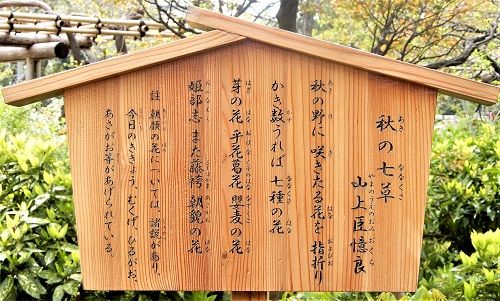 秋の七草
山上臣憶良
秋の野に 咲きたる花を 指折り
かき数うれば 七種の花
芽の花 乎花葛花 瞿麦の花
姫部志 また藤袴 朝貌の花
註 朝顔の花については、諸説があり、
今日のききょう、むくげ、ひるがお、
あさがお等があげられている。